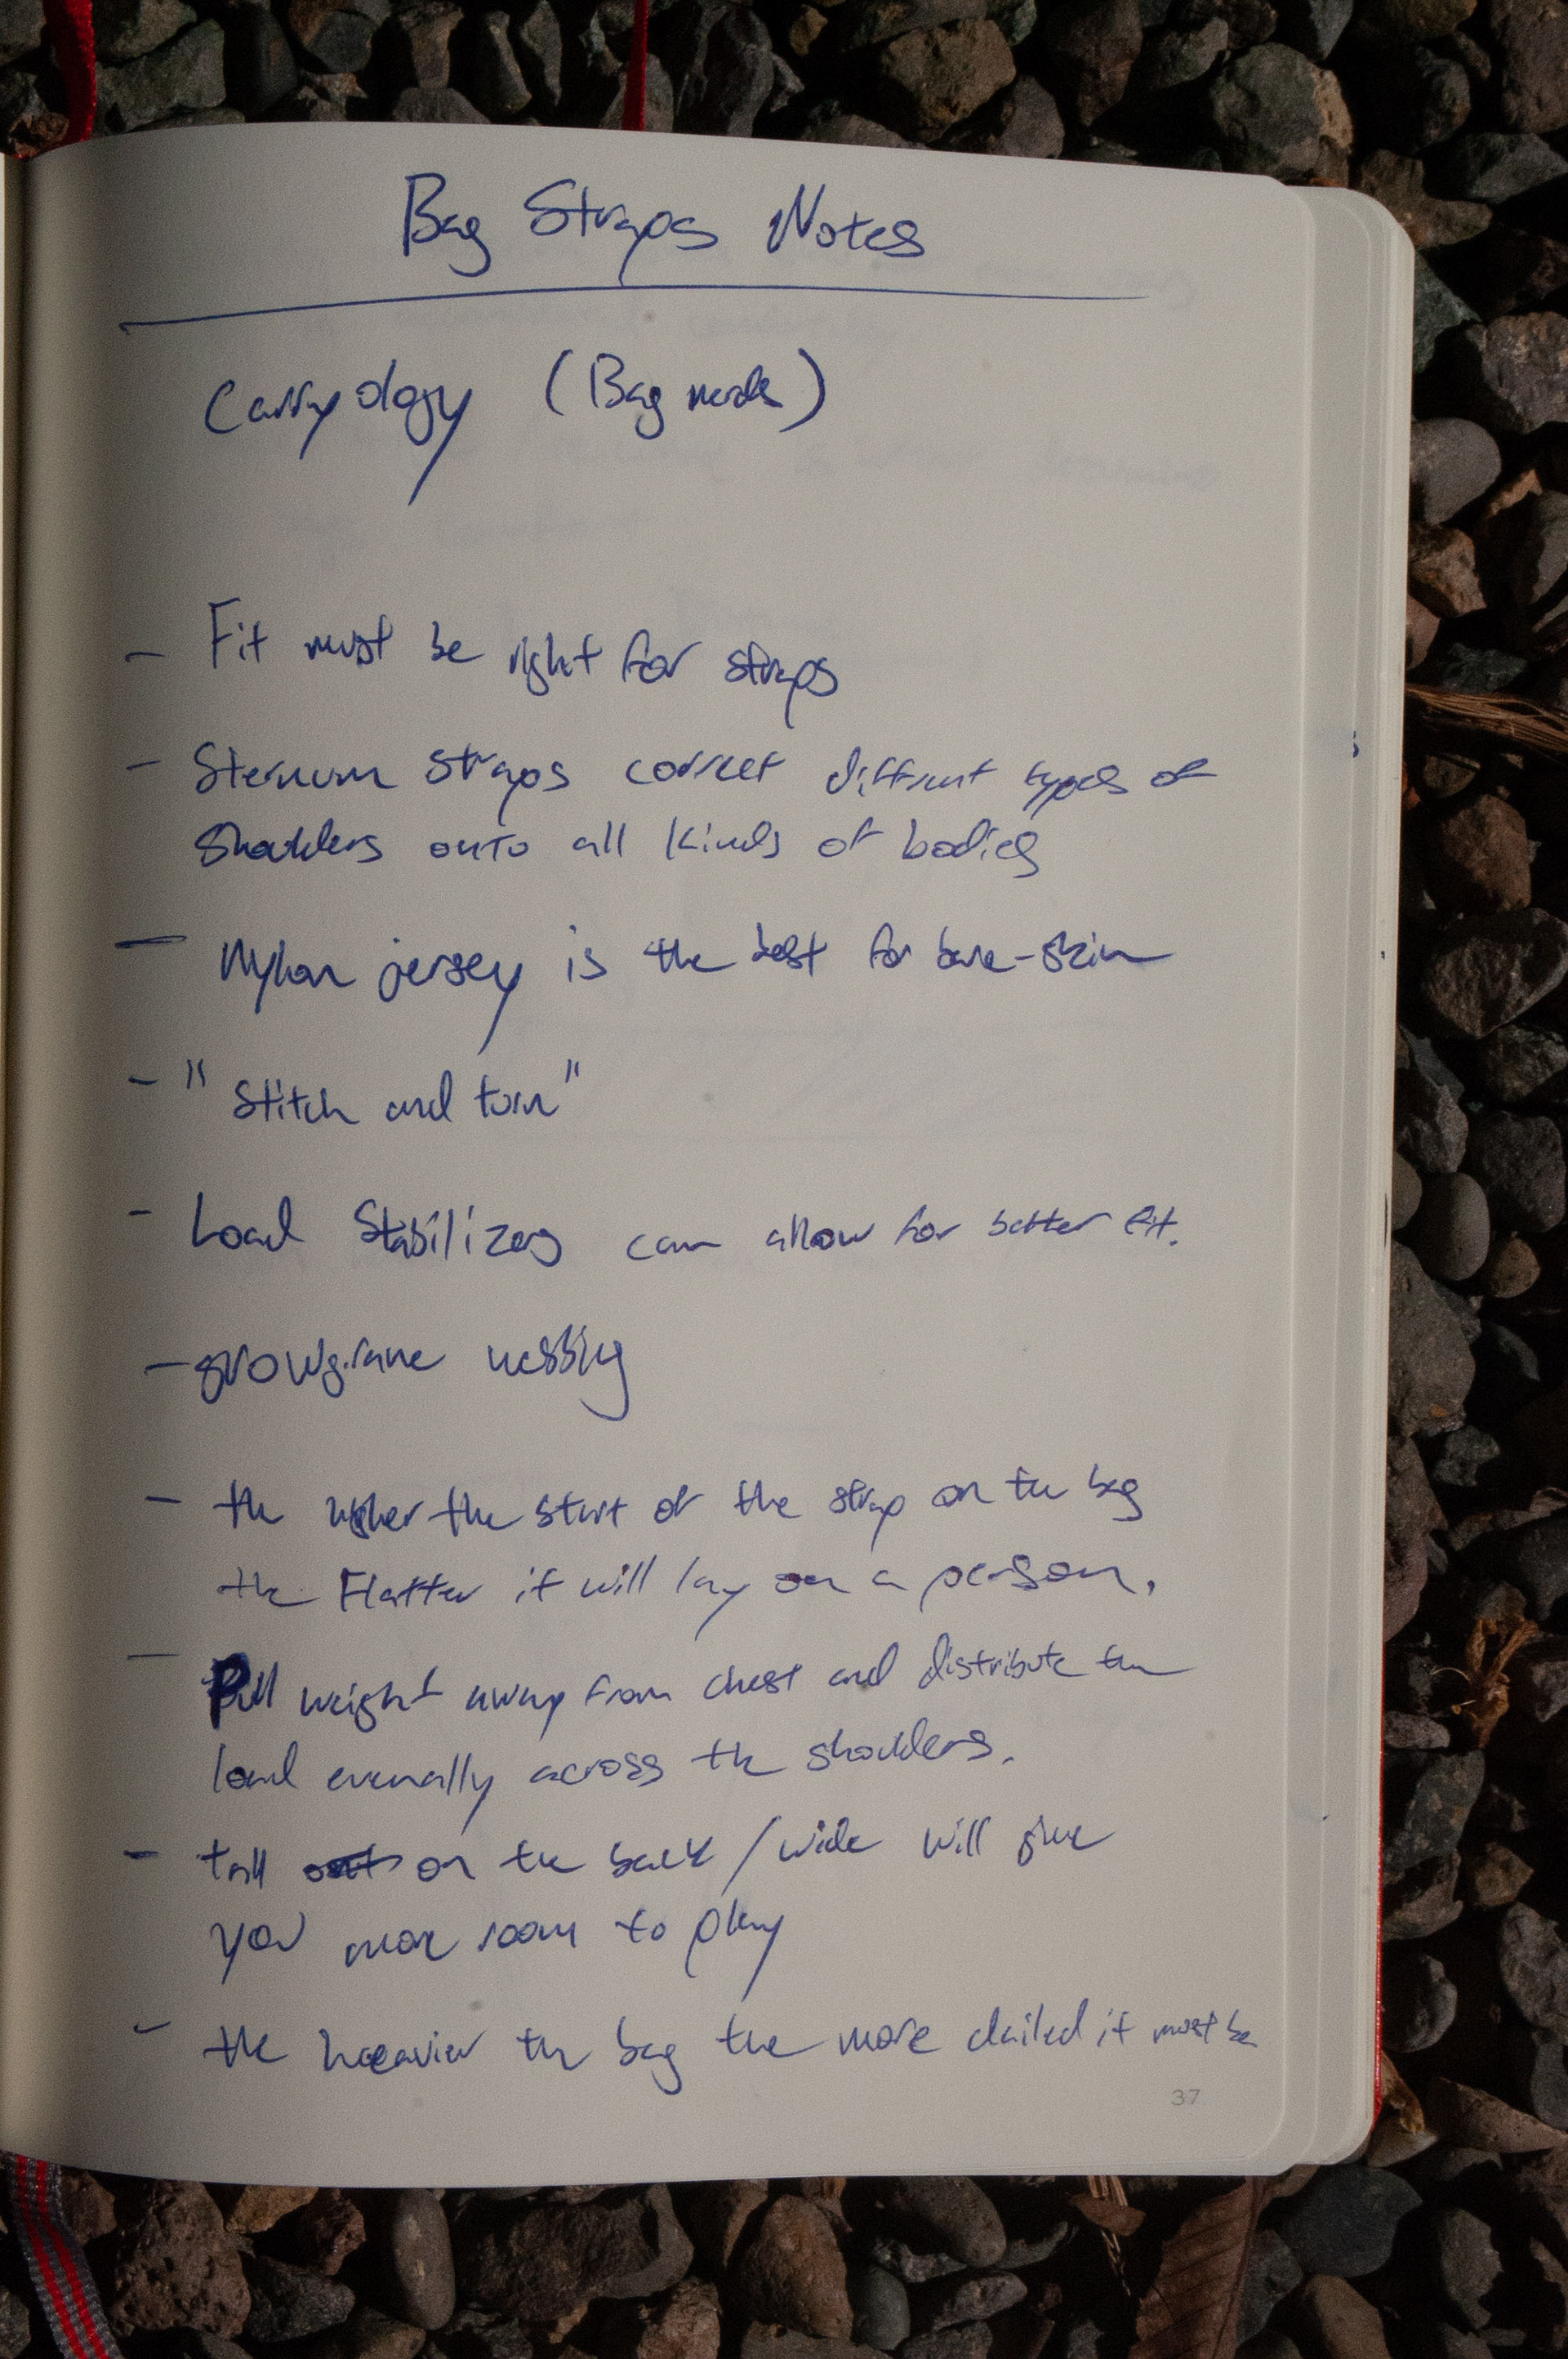 Bag Straps Notes
Carryology (Bag nerds)
- Fit must be right for straps
- Sternum straps correct different types of
shoulders onto all kinds of bodies
- Nylon jersey is the best for bare-skin
- "Stitch and turn"
- Load Stabilizers can allow for better fit.
- growgrane webbing
- the higher the start of the strap on the bag
the flatter it will lay on a person.
- Pull weight away from chest and distribute the
load evenally across the shoulders.
- tall on the back / wide will give
you more room to play
- the heavier the bag the more it must be
37